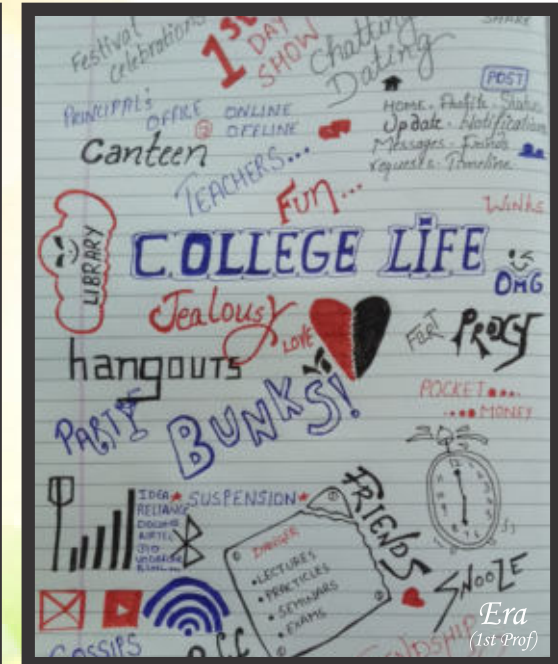 SHARE
Festival
celebrations
1st
DAY
SHOW
Chatting
Dating
POST
PRINCIPAL's
OFFICE
ONLINE
OFFLINE
HOME. Profile. Status
Update. Notifications
Messages. Friends
requests. Timeline
Canteen
TEACHERS...
FUN...
WINKS
LIBRARY
COLLEGE LIFE
OMG
Jealousy
LOVE
PROXY
hangouts
POCKET....
....MONEY
PARTY
BUNKS!
IDEA
RELIANCE
DOCOMO
AIRTEL
JIO
VODAFONE
SUSPENSION
FRIENDS
DANGER
•LECTURES
•PRACTICLES
•SEMINARS
•EXAMS
SNOOZE
GOSSIPS
Era
(1st Prof)